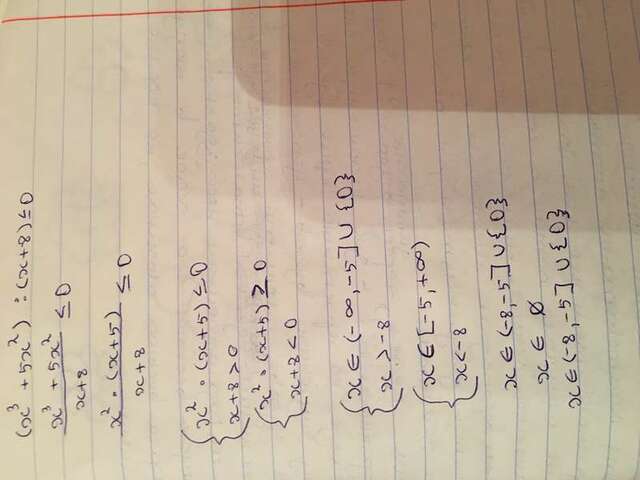 (x³ + 5x²) : (x+8) ≤ 0
x³ + 5x²
x+8
≤ 0
x² · (x+5)
x+8
≤ 0
{ x² · (x+5) ≤ 0
x+8 > 0
{ x² · (x+5) ≥ 0
x+8 < 0
{ x ∈ (-∞, -5] ∪ {0}
x > -8
{ x ∈ [-5, +∞)
x < -8
x ∈ (-8, -5] ∪ {0}
x ∈ ∅
x ∈ (-8, -5] ∪ {0}